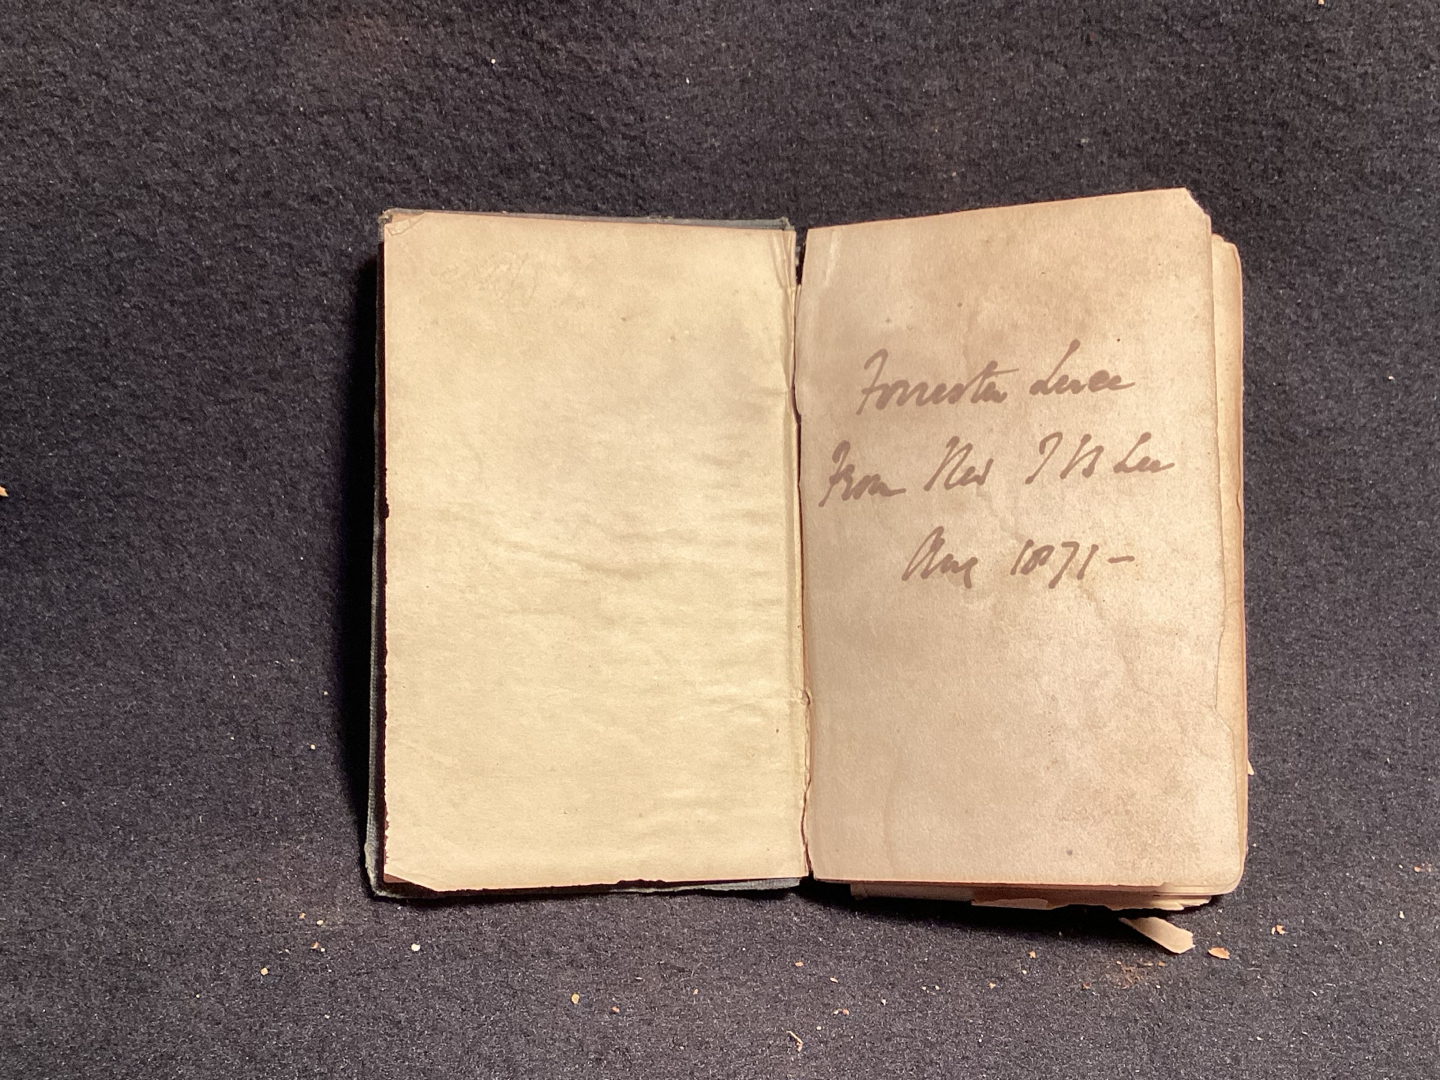 Forrester
From I B Lee
Aug 1871 –